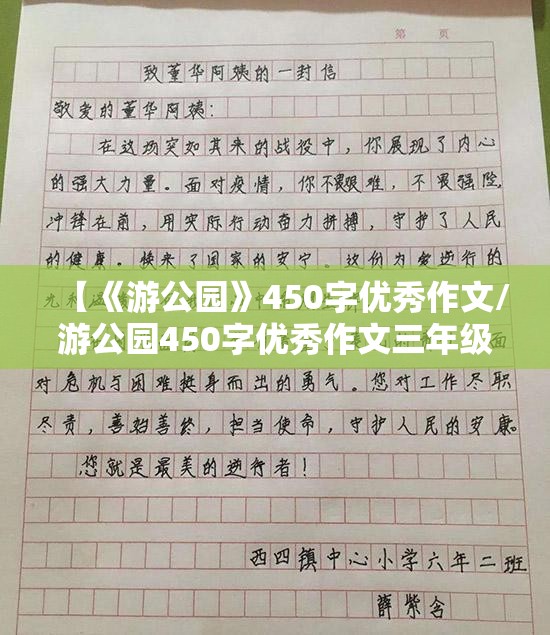 第 页
致董华阿姨的一封信
敬爱的董华阿姨：
在这场突如其来的战役中，你展现了内心
的强大力量。面对疫情，你不畏艰难，不畏强险，
冲锋在前，用实际行动奋力拼搏，守护了人民
的健康。换来了国家的安宁。这份为爱逆行的
【《游公园》450字优秀作文/
游公园450字优秀作文三年级
面
对危机与困难挺身而出的勇气。您对工作尽职
尽责，善始善终，担当使命，守护人民的安康。
您就是最美的逆行者！
西四镇中心小学六年二班
薛紫含